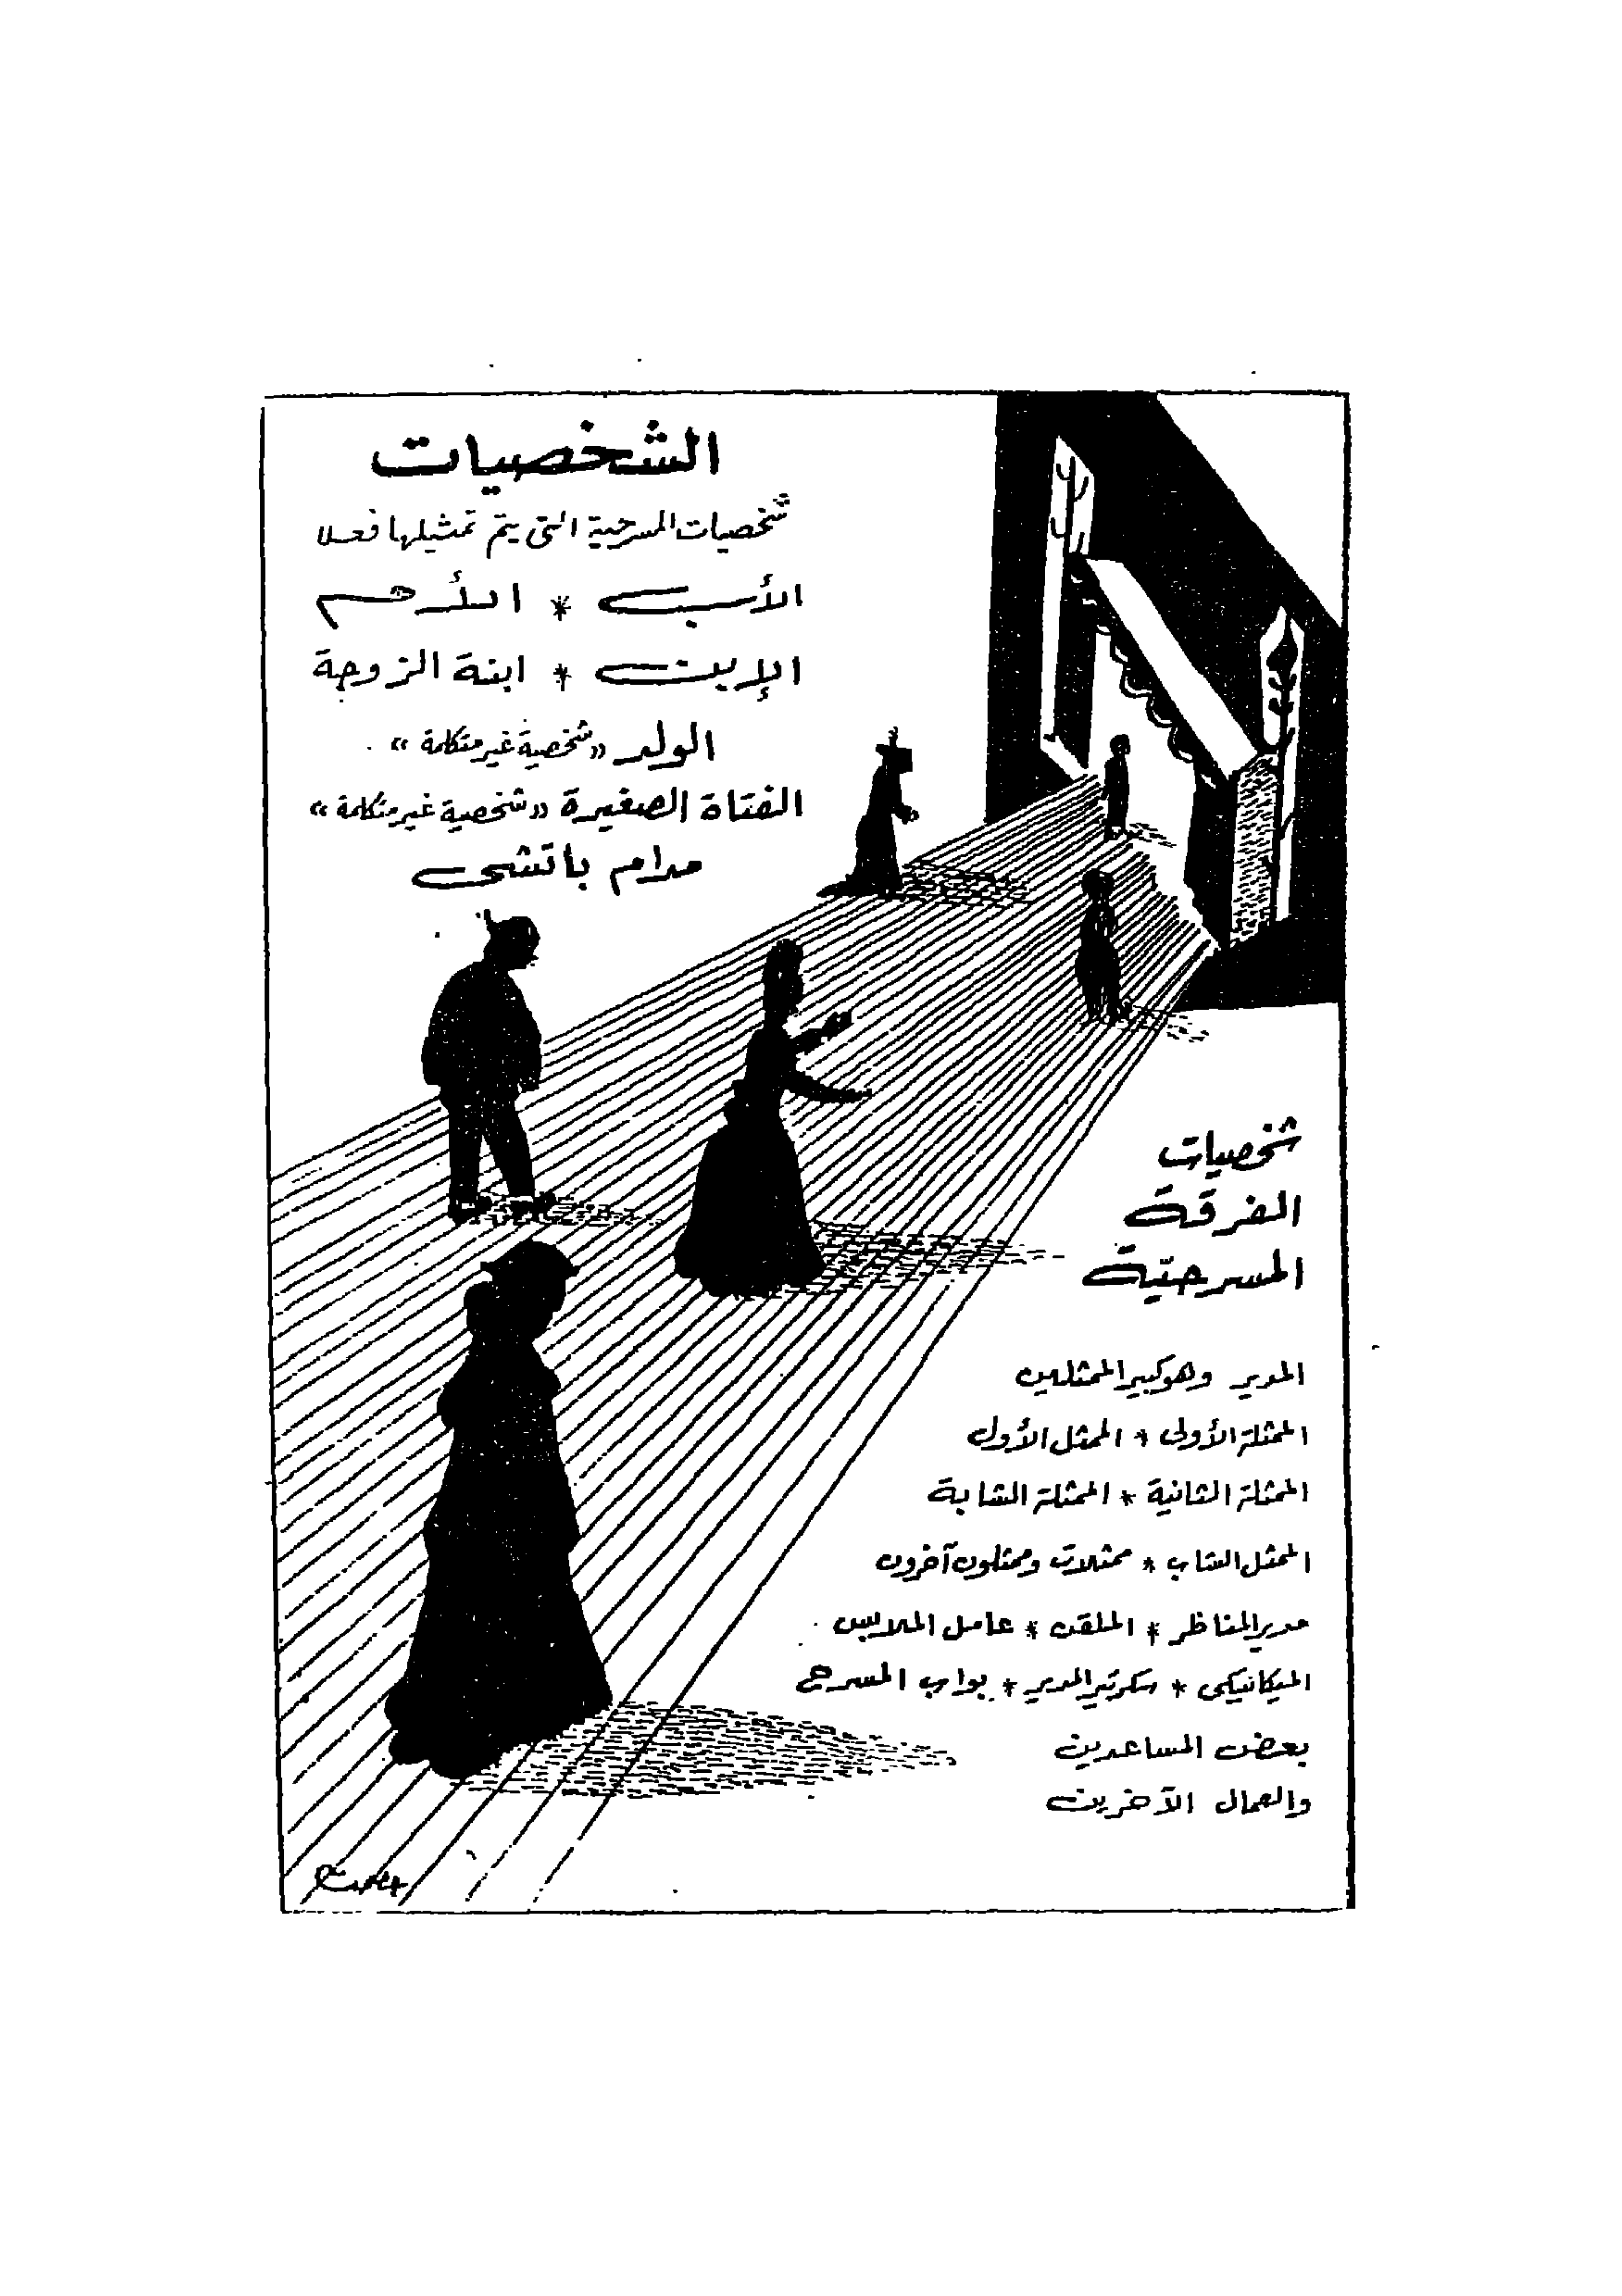 الشخصيات
شخصيات المسرحية التى يتم تمثيلها فعلا
الأب * الأم
الإبن * ابنة الزوجة
الولد «شخصية غير متكلمة»
الفتاة الصغيرة «شخصية غير متكلمة»
مدام باتشى
شخصيات
الفرقة
المسرحيّة
المدير وهو كبير الممثلين
الممثلة الأولى * الممثل الأول
الممثلة الثانية * الممثلة الشابة
الممثل الشاب * ممثلات وممثلون آخرون
مدير المناظر * الملقن * عامل الملابس
الميكانيكى * سكرتير المدير * بواب المسرح
بعض المساعدين
والعمال الآخرين